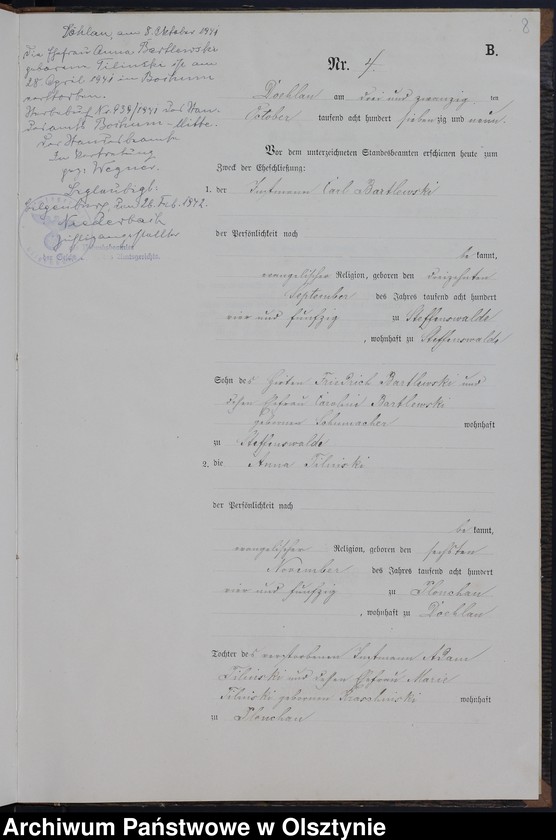 8
B.
Nr. 4.
Döhlau, am 8. Oktober 1941
Die Ehefrau Anna Bartlewski
geborene Tilinski ist am
28. April 1941 in Bochum
verstorben.
Sterbebuch No 934/1941 des Stan-
desamts Bochum-Mitte.
Der Standesbeamte
In Vertretung
gez. Wegner.
Beglaubigt:
Gilgenburg, den 26. Feb. 1942.
Justizangestellter
Döhlau am drei und zwanzig ten
October tausend acht hundert siebenzig und neun.
Vor dem unterzeichneten Standesbeamten erschienen heute zum
Zweck der Eheschließung:
1. der Instmann Carl Bartlewski
der Persönlichkeit nach
be kannt,
evangelischer Religion, geboren den dreizehnten
September des Jahres tausend acht hundert
vier und fünfzig zu Steffenswalde
, wohnhaft zu Steffenswalde
Sohn des Hirten Friedrich Bartlewski und
dessen Ehefrau Caroline Bartlewski
geborenen Schumacher wohnhaft
zu Steffenswalde
2. die Anna Tilinski
der Persönlichkeit nach
be kannt,
evangelischer Religion, geboren den sechsten
November des Jahres tausend acht hundert
vier und fünfzig zu Plonchau
, wohnhaft zu Döhlau
Tochter des verstorbenen Instmann Adam
Tilinski und dessen Ehefrau Marie
Tilinski geborenen wohnhaft
zu Plonchau
Archiwum Państwowe w Olsztynie